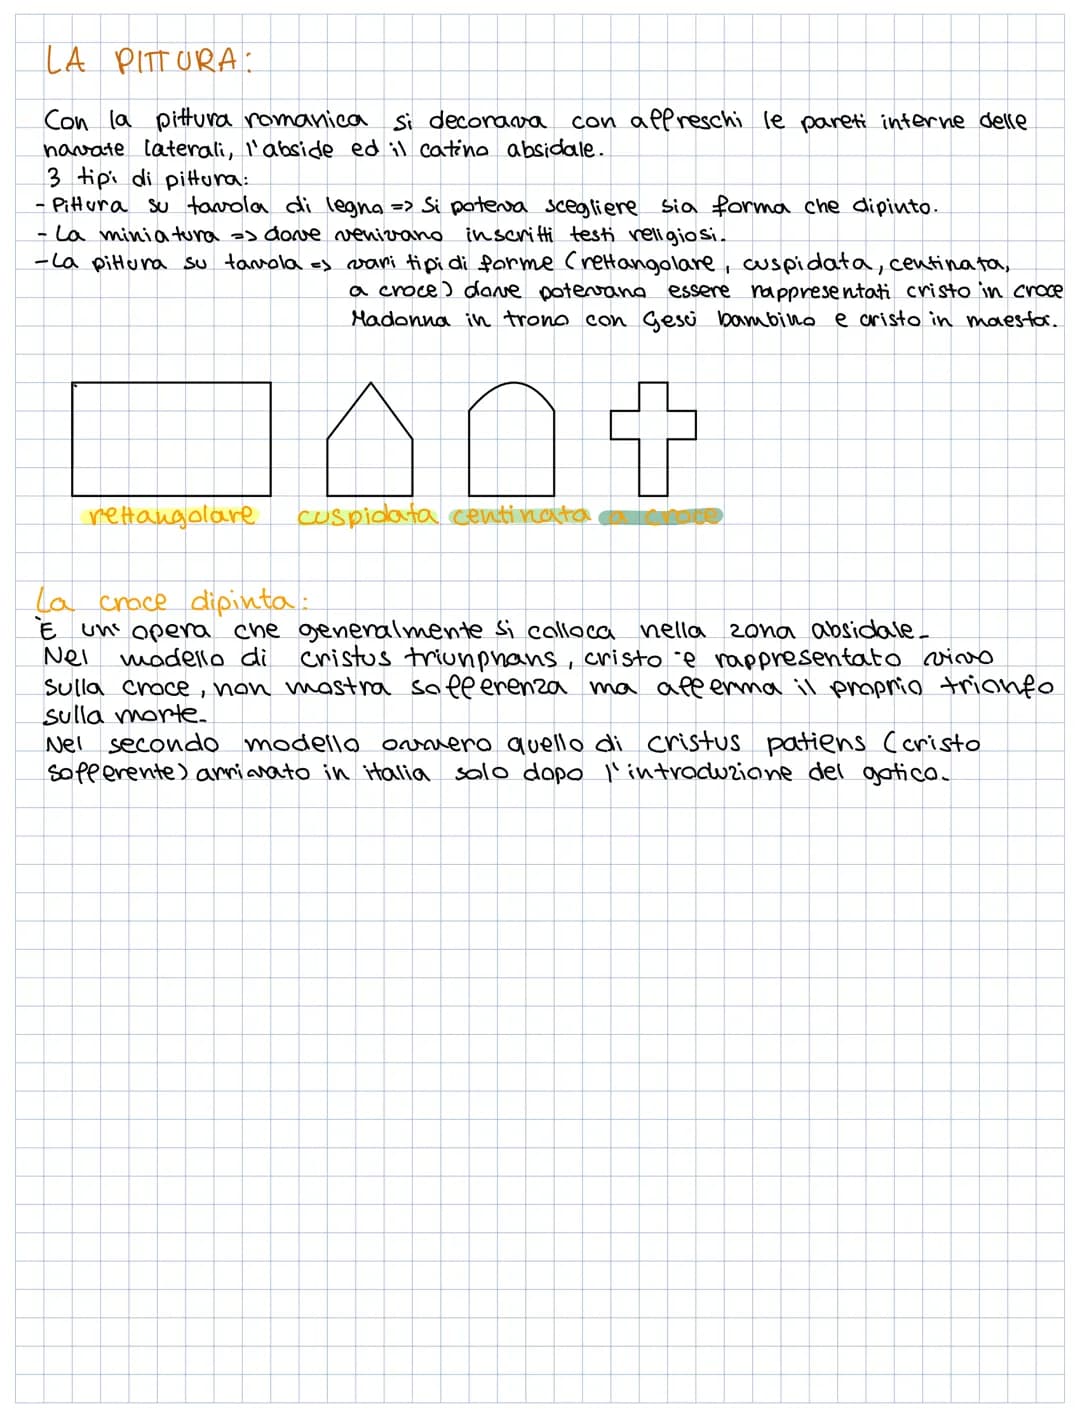 LA PITTURA:
Con la pittura romanica si decorava con affreschi le pareti interne delle
navate laterali, l'abside ed il catino absidale.
3 tipi di pittura:
- Pittura su tavola di legno => Si poteva scegliere sia forma che dipinto.
- La miniatura => dove venivano inscritti testi religiosi.
- La pittura su tavola => vari tipi di forme (rettangolare, cuspidata, centinata,
a croce) dove potevano essere rappresentati cristo in croce
Madonna in trono con Gesù bambino e cristo in maestà.
rettangolare cuspidata centinata a croce
La croce dipinta:
È un' opera che generalmente si colloca nella zona absidale.
Nel modello di cristus triunphans, cristo è rappresentato vivo
sulla croce, non mostra sofferenza ma afferma il proprio trionfo
sulla morte.
Nel secondo modello ovvero quello di cristus patiens (cristo
sofferente) arrivato in italia solo dopo l'introduzione del gotico.